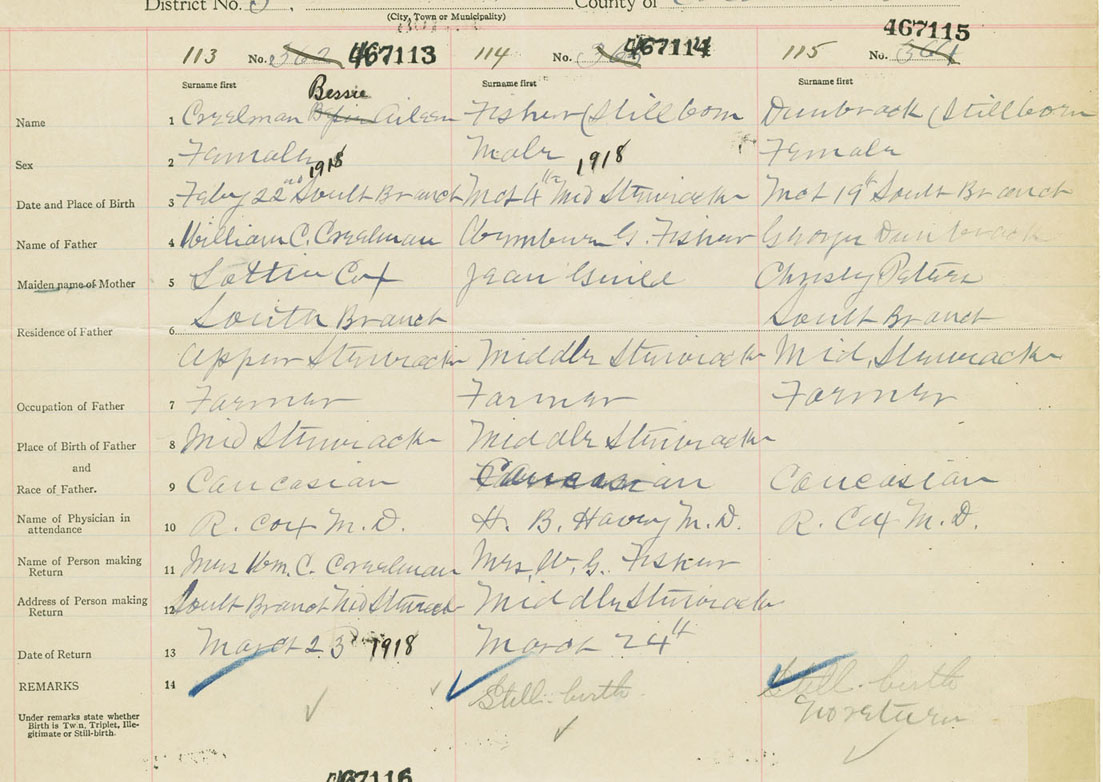 District No. 5, County of
(City, Town or Municipality)
467115
113 No. 467113 114 No. 467114 115 No.
Surname first Surname first Surname first
Bessie
Name 1 Creelman Bessie Aileen Fisher (Stillborn Dunbrook (Stillborn
Sex 2 Female Male Female
1918 1918
Date and Place of Birth 3 Feby 22nd South Branch Mch 4th Mid Stewiacke Mch 19th South Branch
Name of Father 4 William C. Creelman G. Fisher George Dunbrook
Maiden name of Mother 5 Lottie Cox Jean Guild Christy
South Branch South Branch
Residence of Father 6
Upper Stewiacke Middle Stewiacke Mid. Stewiacke
Occupation of Father 7 Farmer Farmer Farmer
Place of Birth of Father 8 Mid Stewiacke Middle Stewiacke
and
Race of Father. 9 Caucasian Caucasian Caucasian
Name of Physician in
attendance 10 R. Cox M.D. H. B. Havey M.D. R. Cox M.D.
Name of Person making
Return 11 Mrs Wm. C. Creelman Mrs. W. G. Fisher
Address of Person making
Return 12 South Branch Mid Stewiacke Middle Stewiacke
Date of Return 13 March 23 1918 March 24th
REMARKS 14 Still-birth Still-birth
No return
Under remarks state whether
Birth is Twin, Triplet, Ille-
gitimate or Still-birth.
467116